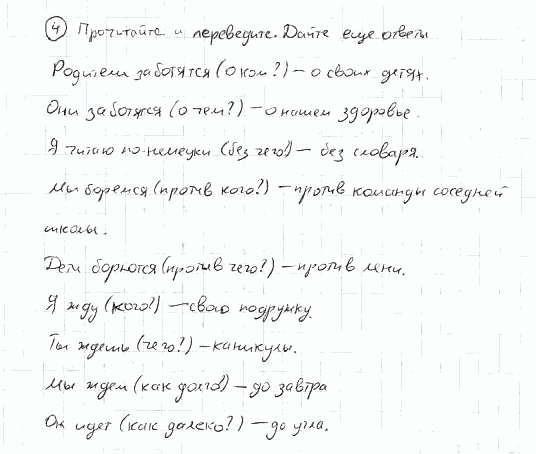 ④ Прочитайте и переведите. Дайте еще ответы
Родители заботятся (о ком?) – о своих детях.
Они заботятся (о чем?) – о нашем здоровье.
Я читаю по-немецки (без чего?) – без словаря.
Мы боремся (против кого?) – против команды соседней
школы.
Дети борются (против чего?) – против лени.
Я жду (кого?) – свою подружку.
Ты ждешь (чего?) – каникулы.
Мы ждем (как долго?) – до завтра
Он идет (как далеко?) – до угла.